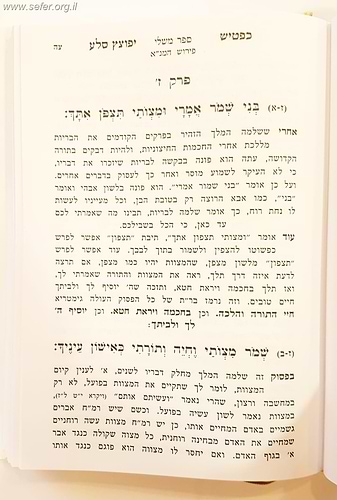 www.sefer.org.il
כפטיש ספר משלי יפוצץ סלע עה
פירוש חמ"א
פרק ז'
(ז-א) בְּנִי שְׁמֹר אֲמָרָי וּמִצְוֹתַי תִּצְפֹּן אִתָּךְ:
אחרי ששלמה המלך הזהיר בפרקים הקודמים את הבריות
מללכת אחרי החכמות החיצוניות, ולהיות דבקים בתורה
הקדושה, עתה הוא פונה בבקשה לבריות שיזכרו את דבריו,
כי לא העיקר לשמוע מוסר ואחר כך לעסוק בדברים אחרים.
ועל כן אומר "בני שמור אמרי". הוא פונה בלשון אבהי ואומר
"בני", כמו אבא הרוצה רק בטובת הבן, וכל מעייניו לעשות
לו נחת רוח, כך אומר שלמה לבריות, תבינו מה שאמרתי לכם
עד כאן, כי הכל בשבילכם.
עוד אומר "ומצותי תצפון אתך", תיבת "תצפון" אפשר לפרש
כפשוטו להצפין ולשמור בתוך לבבך. עוד אפשר לפרש
"תצפון" מלשון מצפן, שהמצוות יהיו כמו מצפן, אם תרצה
לדעת איזה דרך תלך, ראה את המצוות והתורה שאמרתי לך,
ואז תלך בחכמה ויראת חטא, ותזכה שה' יוסיף לך ולביתך
חיים טובים. וזה נרמז בר"ת של כל הפסוק העולה גימטריא
חיי התורה והלכה. וכן בחכמה ויראת חטא. וכן יוסיף ה'
לך ולביתך:
(ז-ב) שְׁמֹר מִצְוֹתַי וֶחְיֵה וְתוֹרָתִי כְּאִישׁוֹן עֵינֶיךָ:
בפסוק זה שלמה המלך מחלק דבריו לשנים, א' לענין קיום
המצוות, לומר לך שתקיים את המצוות בפועל, לא רק
במחשבה ורצון, שהרי נאמר "ועשיתם אותם" (ויקרא י"ט ל"ז),
במצוות נאמר לשון עשיה בפועל. וכשם שיש רמ"ח אברים
גשמיים באדם המחיים אותו, כן יש רמ"ח מצוות עשה רוחניים
שמחיים את האדם מבחינה רוחנית, כל מצוה שקולה כנגד אבר
א' בגוף האדם. ואם יחסר לו מצווה הוא פוגם כנגד אותו